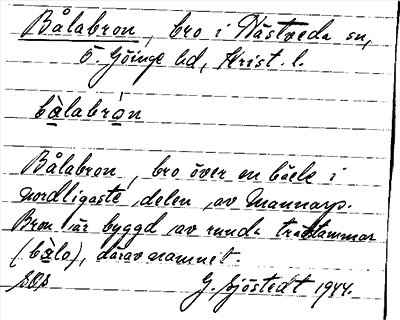 Bålabron, bro i Västveda sn,
Ö. Göinge hd, Krist. l.
bàlabrón
Bålabron, bro över en bäck i
nordligaste delen av Mannarp.
Bron är byggd av runda trästammar
(bàlo), därav namnet.
G. Sjöstedt 1944.